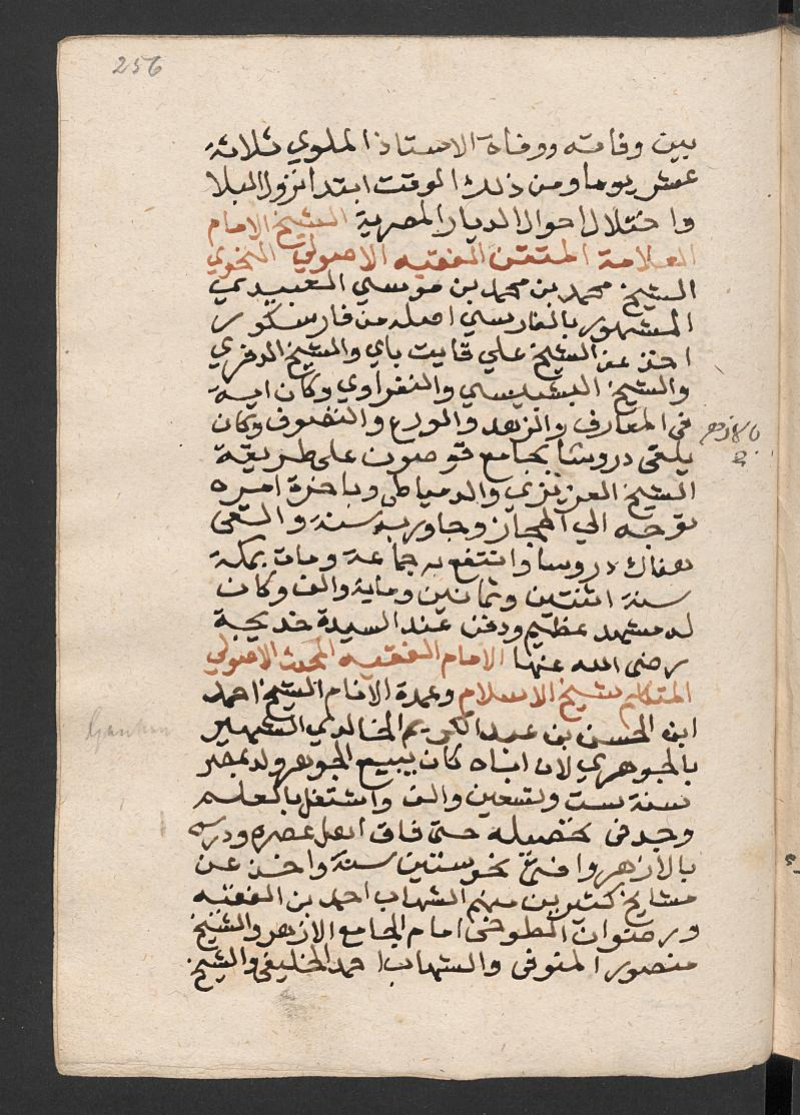 256
بين وفاته ووفاة الاستاذ الملوي ثلاثة
عشر يوما ومن ذلك الوقت ابتدا نزول البلا
واختلال احوال الديار المصرية الشيخ الامام
العلامة المتقن الفقيه الاصولي النحوي
الشيخ محمد بن محمد بن موسي العبيدي
المشهور بالفارسي اصله من فارسكور
اخذ عن الشيخ علي قايت باي والشيخ الدفري
والشيخ البشبيسي والنفراوي وكان اية
في المعارف والزهد والورع والتصوف وكان
يلقي دروسا بجامع قوصون على طريقة
الشيخ العزيزي والدمياطي وباخرة امره
توجه الي الحجاز وجاور به سنة والقى
هناك دروسا وانتفع به جماعة ومات بمكة
سنة اثنتين وثمانين وماية والف وكان
له مشهد عظيم ودفن عند السيدة خديجة
رضى الله عنها الامام الفقيه المحدث الاصولي
المتكلم شيخ الاسلام وعمدة الانام الشيخ احمد
ابن الحسن بن عبد الكريم الخالدي الشهير
بالجوهري لان اباه كان يبيع الجوهر ولد بمصر
سنة ست وتسعين والف واشتغل بالعلم
وجد في تحصيله حتى فاق اهل عصره ودرس
بالازهر وافتى نحو ستين سنة واخذ عن
مشايخ كثيرين منهم الشهاب احمد بن الفقيه
ورضوان الطوخى امام الجامع الازهر والشيخ
منصور المنوفى والشهاب احمد الخليفي والشيخ